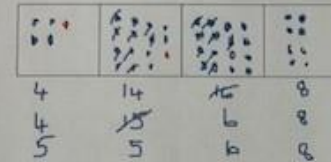 4 14 16 8
4 15 6 8
5 5 6 8